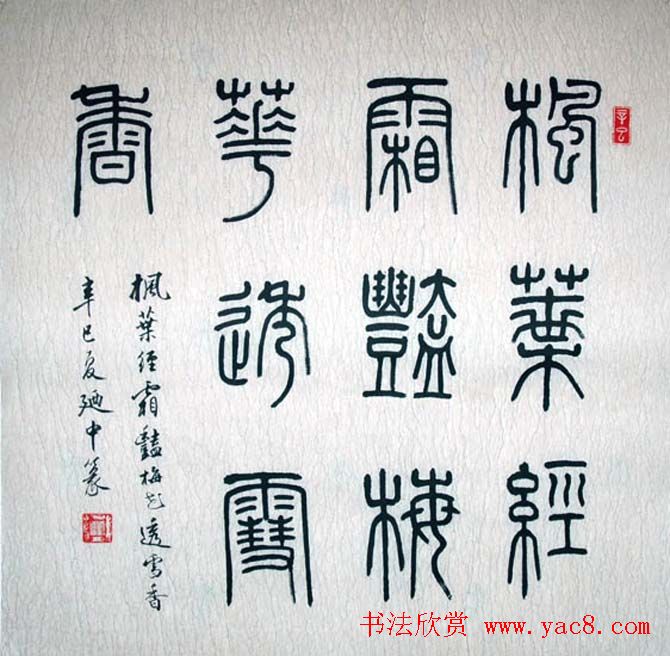 辛巳
楓葉經
霜豔梅
華透雪
香
楓葉經霜豔梅花透雪香
辛巳夏廼中篆
书法欣赏 www.yac8.com